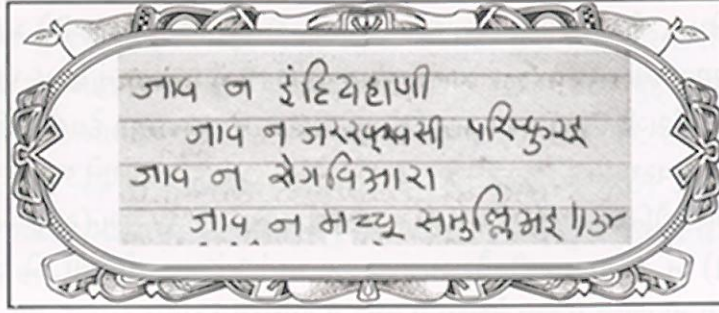 जाव न इंदियहाणी
जाव न जररक्खसी परिप्फुरइ
जाव न रोगविआरा
जाव न मच्चू समुल्लिअइ